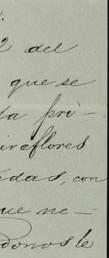 2 del
que se
ta pri-
iraflores
das, con
que ne-
donosle